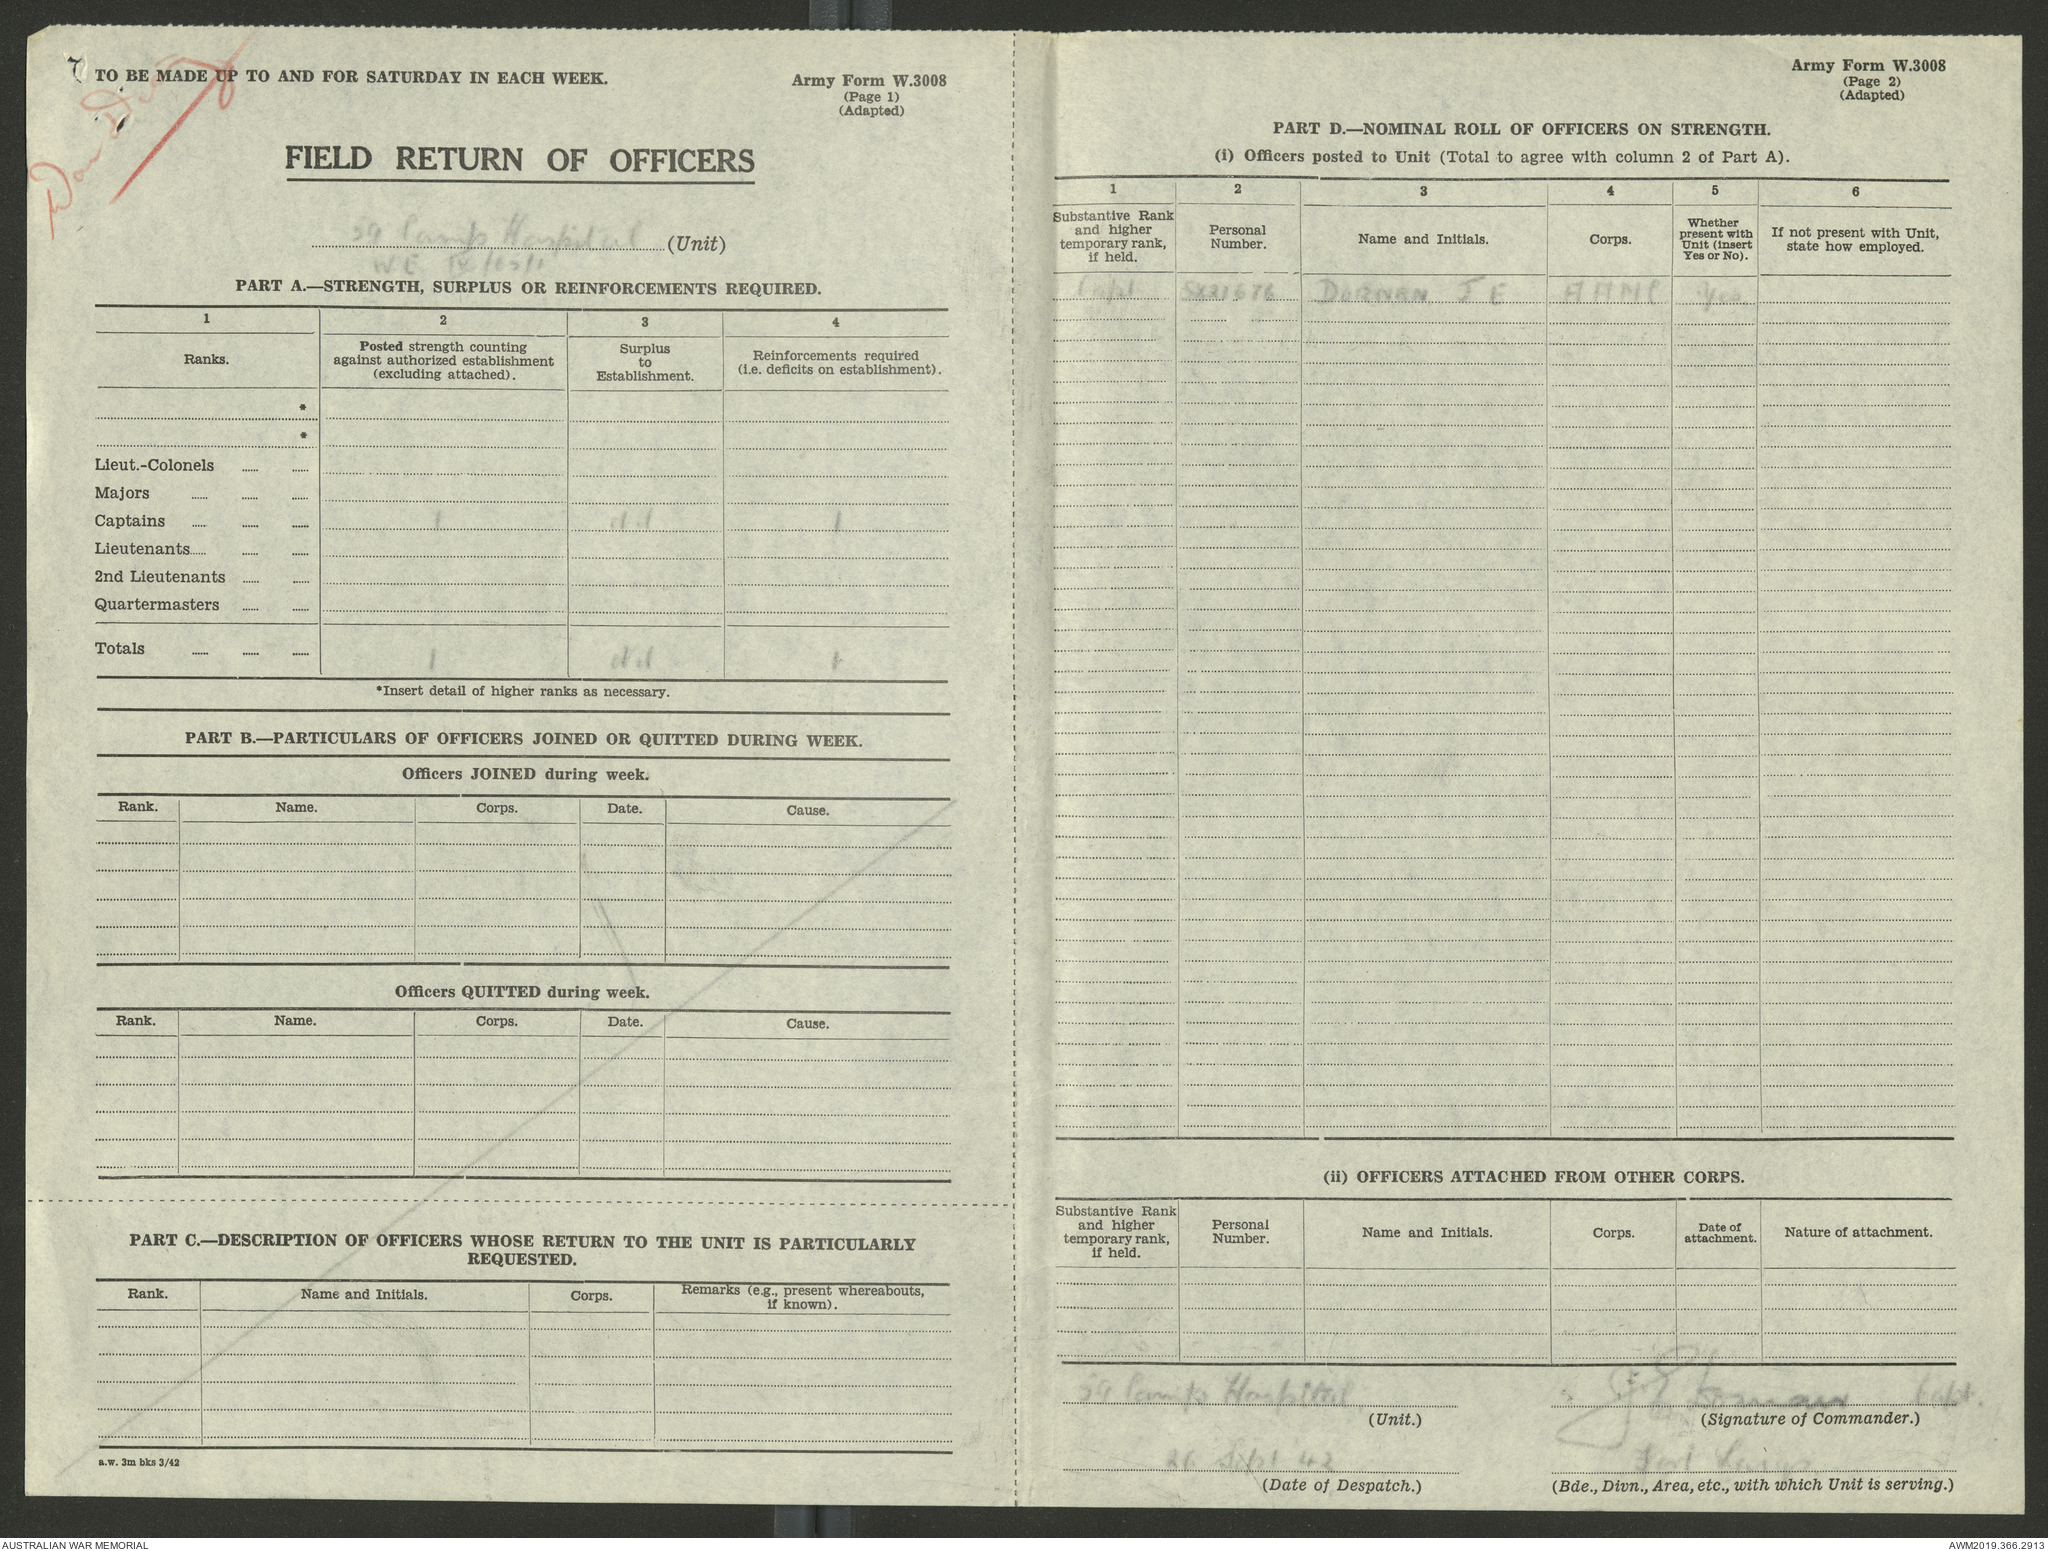 TO BE MADE UP TO AND FOR SATURDAY IN EACH WEEK.
Army Form W.3008
(Page 1)
(Adapted)
War Diary
FIELD RETURN OF OFFICERS
59 Camp Hospital (Unit)
WE
PART A.—STRENGTH, SURPLUS OR REINFORCEMENTS REQUIRED.
1 2 3 4
Ranks. Posted strength counting against authorized establishment (excluding attached). Surplus to Establishment. Reinforcements required (i.e. deficits on establishment).
*
*
Lieut.-Colonels
Majors
Captains 1 Nil 1
Lieutenants
2nd Lieutenants
Quartermasters
Totals 1 Nil 1
*Insert detail of higher ranks as necessary.
PART B.—PARTICULARS OF OFFICERS JOINED OR QUITTED DURING WEEK.
Officers JOINED during week.
Rank. Name. Corps. Date. Cause.
Officers QUITTED during week.
Rank. Name. Corps. Date. Cause.
PART C.—DESCRIPTION OF OFFICERS WHOSE RETURN TO THE UNIT IS PARTICULARLY
REQUESTED.
Rank. Name and Initials. Corps. Remarks (e.g., present whereabouts, if known).
a.w. 3m bks 3/42
Army Form W.3008
(Page 2)
(Adapted)
PART D.—NOMINAL ROLL OF OFFICERS ON STRENGTH.
(i) Officers posted to Unit (Total to agree with column 2 of Part A).
1 2 3 4 5 6
Substantive Rank and higher temporary rank, if held. Personal Number. Name and Initials. Corps. Whether present with Unit (insert Yes or No). If not present with Unit, state how employed.
Capt SX21676 DORNAN J E AAMC Yes
(ii) OFFICERS ATTACHED FROM OTHER CORPS.
Substantive Rank and higher temporary rank, if held. Personal Number. Name and Initials. Corps. Date of attachment. Nature of attachment.
59 Camp Hospital
(Unit.)
J E Dornan Capt.
(Signature of Commander.)
26 Sept 42
(Date of Despatch.)
(Bde., Divn., Area, etc., with which Unit is serving.)
AUSTRALIAN WAR MEMORIAL
AWM2019.366.2913